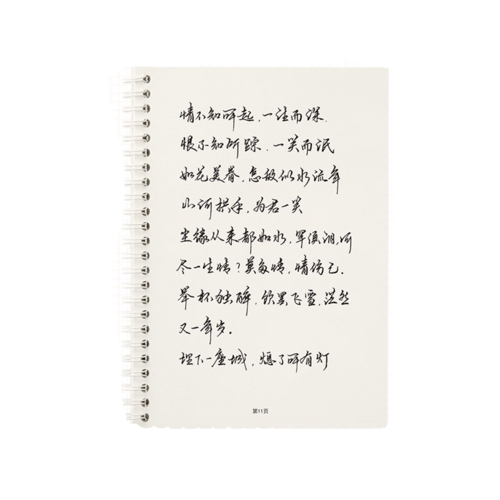 情不知所起，一往而深
恨不知所踪，一笑而泯
如花美眷，怎敌似水流年
山河拱手，为君一笑
尘缘从来都如水，罕须泪，何
尽一生情？莫多情，情伤己．
举杯独醉，饮罢飞雪，茫然
又一年岁．
埋下一座城，熄了所有灯
第11页